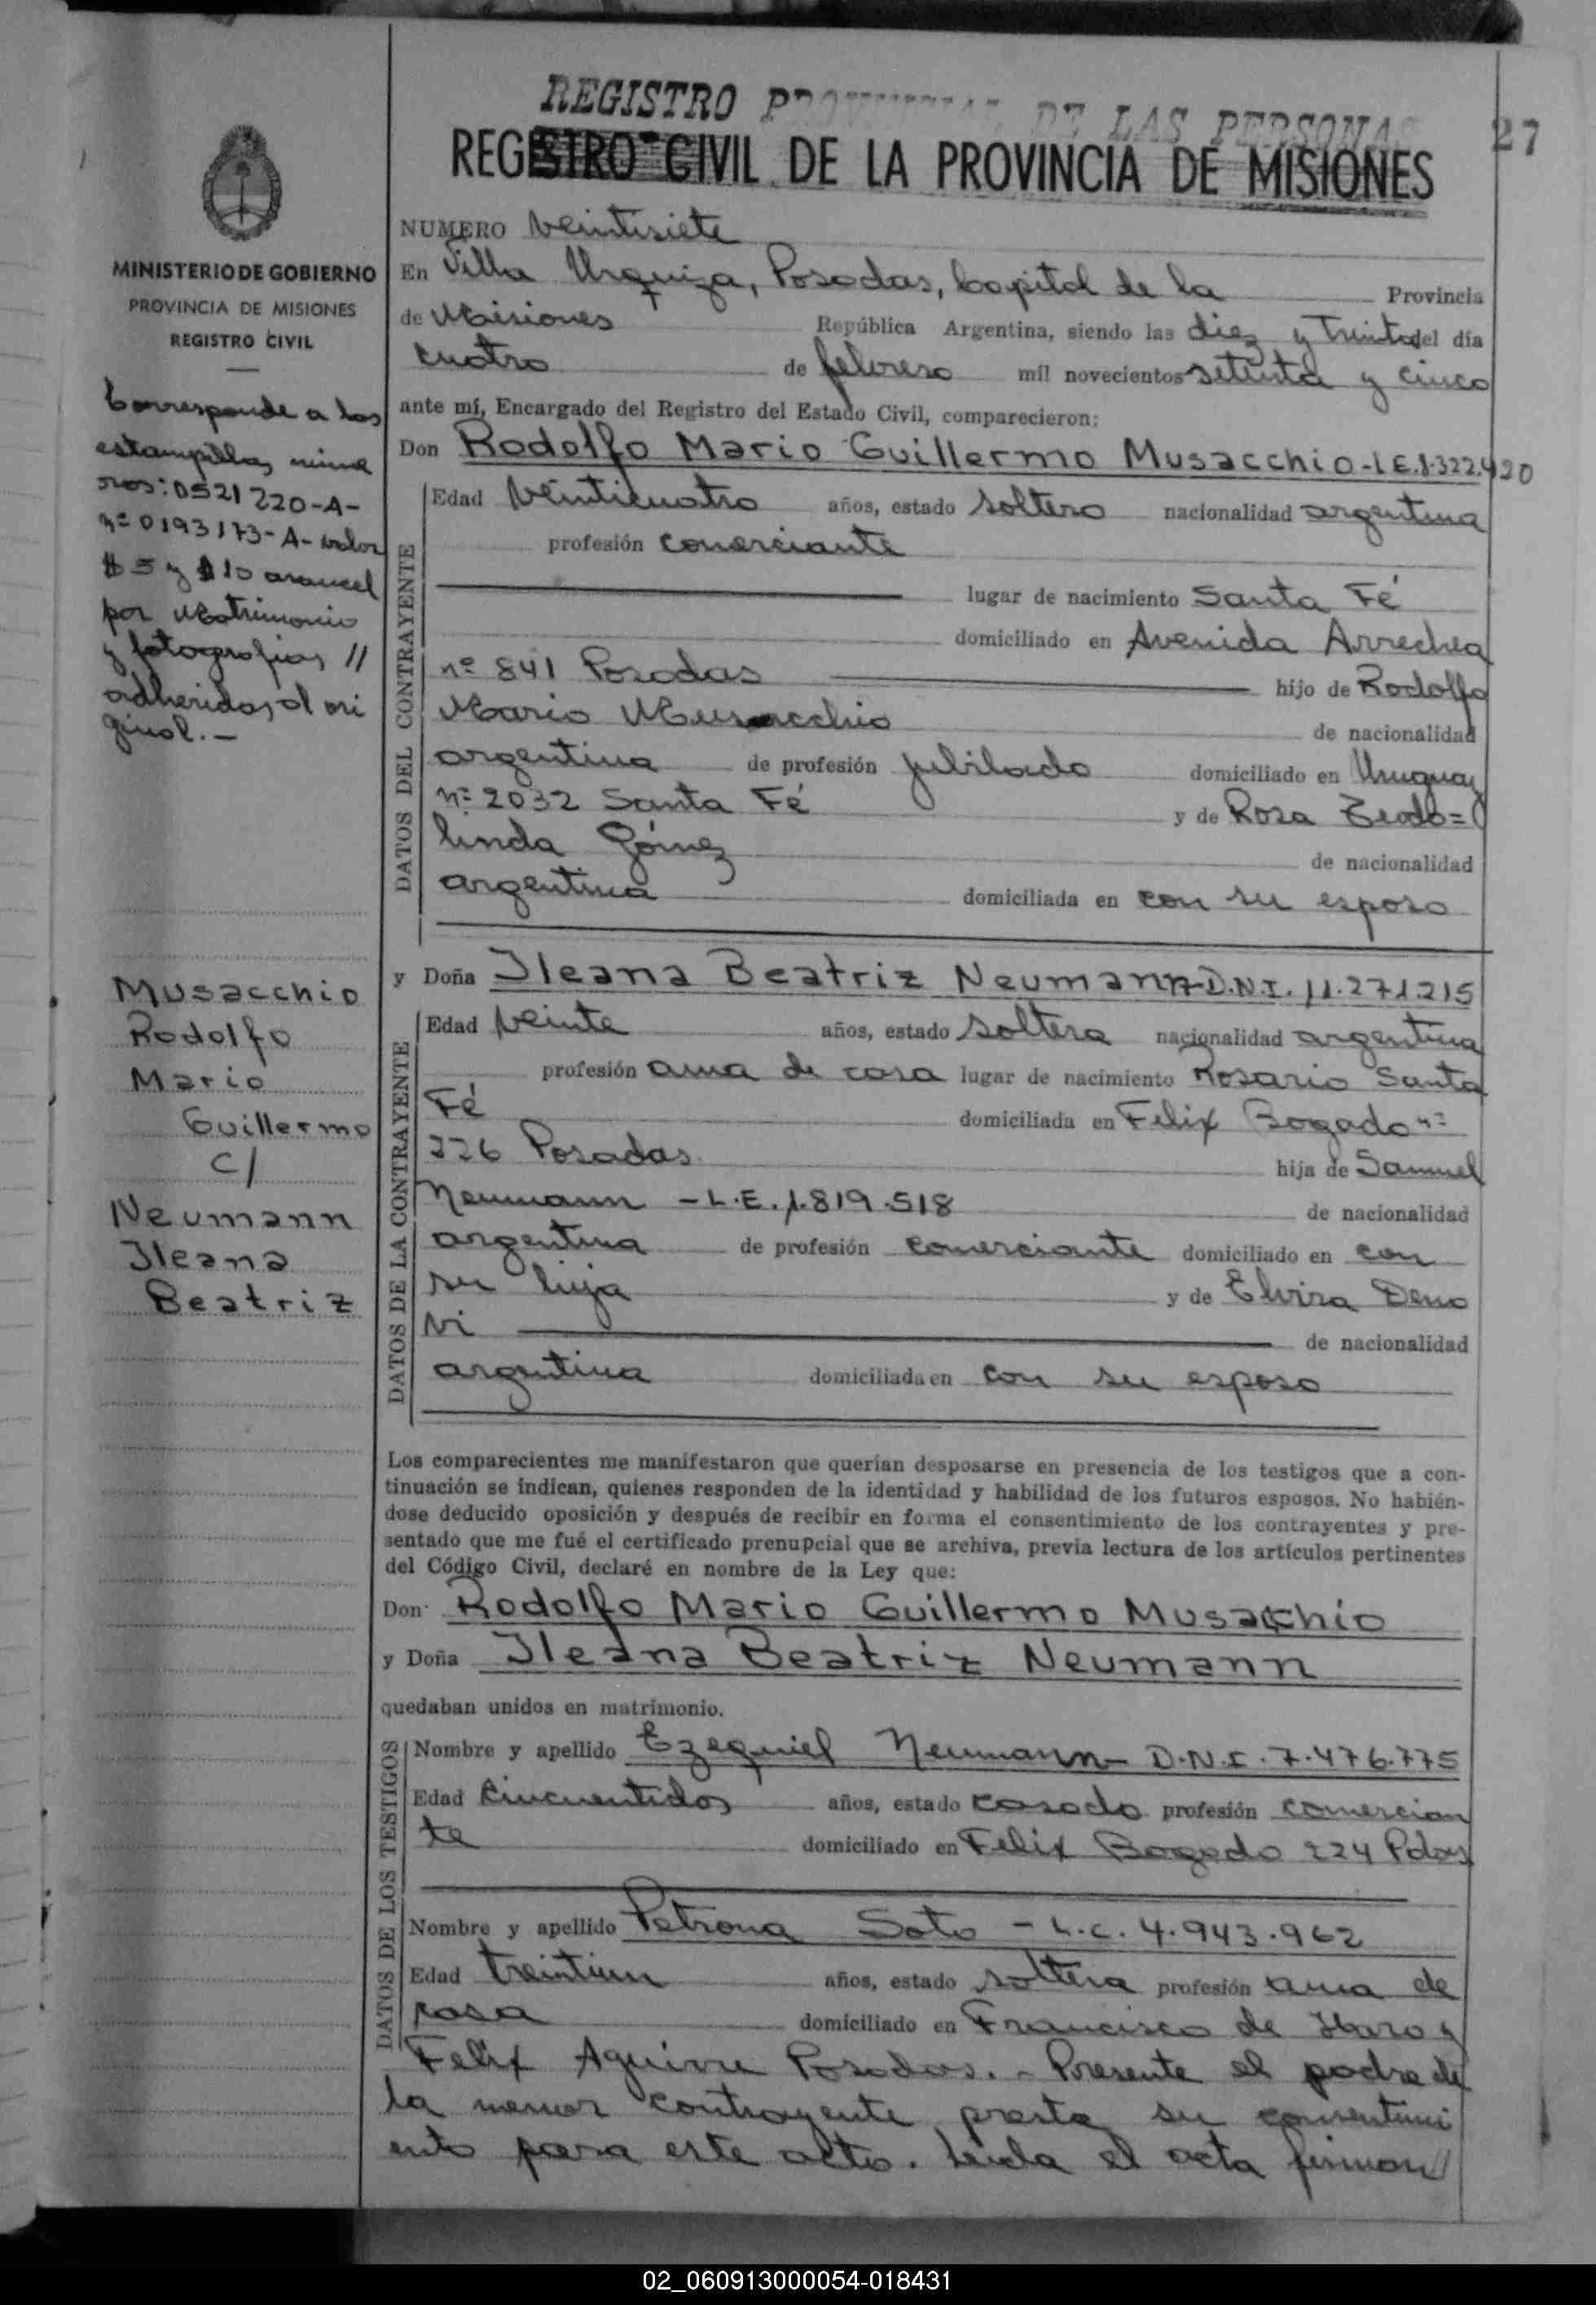 REGISTRO PROVINCIAL DE LAS PERSONAS
27
REGISTRO CIVIL DE LA PROVINCIA DE MISIONES
MINISTERIO DE GOBIERNO
PROVINCIA DE MISIONES
REGISTRO CIVIL
Corresponde a las
estampillas núme
ros: 0521220-A-
nº 0193173-A- valor
$ 5 y $ 10 arancel
por Matrimonio
y fotografias //
adheridas al ori
ginal.-
Musacchio
Rodolfo
Mario
Guillermo
C/
Neumann
Ileana
Beatriz
NUMERO Veintisiete
En Villa Urquiza, Posadas, Capital de la Provincia
de Misiones República Argentina, siendo las diez y treinta del día
cuatro de febrero mil novecientos setenta y cinco
ante mí, Encargado del Registro del Estado Civil, comparecieron:
Don Rodolfo Mario Guillermo Musacchio-L.E.8.322.420
DATOS DEL CONTRAYENTE
Edad Veinticuatro años, estado soltero nacionalidad argentina
profesión comerciante
lugar de nacimiento Santa Fé
domiciliado en Avenida Arrechea
nº 841 Posadas hijo de Rodolfo
Mario Musacchio de nacionalidad
argentina de profesión jubilado domiciliado en Uruguay
nº 2032 Santa Fé y de Rosa Teodo=
linda Gómez de nacionalidad
argentina domiciliada en con su esposo
y Doña Ileana Beatriz Neumann-D.N.I. 11.271.215
DATOS DE LA CONTRAYENTE
Edad Veinte años, estado soltera nacionalidad argentina
profesión ama de casa lugar de nacimiento Rosario Santa
Fé domiciliada en Felix Bogado nº
226 Posadas hija de Samuel
Neumann - L.E. 1.819.518 de nacionalidad
argentina de profesión comerciante domiciliado en con
su hija y de Elvira Deno
vi de nacionalidad
argentina domiciliada en con su esposo
Los comparecientes me manifestaron que querían desposarse en presencia de los testigos que a con-
tinuación se indican, quienes responden de la identidad y habilidad de los futuros esposos. No habién-
dose deducido oposición y después de recibir en forma el consentimiento de los contrayentes y pre-
sentado que me fué el certificado prenupcial que se archiva, previa lectura de los artículos pertinentes
del Código Civil, declaré en nombre de la Ley que:
Don Rodolfo Mario Guillermo Musacchio
y Doña Ileana Beatriz Neumann
quedaban unidos en matrimonio.
DATOS DE LOS TESTIGOS
Nombre y apellido Ezequiel Neumann- D.N.I. 7.476.775
Edad cincuentidos años, estado casado profesión comercian
te domiciliado en Felix Bogado 224 Pdas
Nombre y apellido Petrona Soto - L.C. 4.943.962
Edad treintiun años, estado soltera profesión ama de
casa domiciliado en Francisco de Haro y
Felix Aguirre Posadas.- Presente el padre de
la menor contrayente presta su consentimi
ento para este acto. Leida el acta firman//
02_060913000054-018431